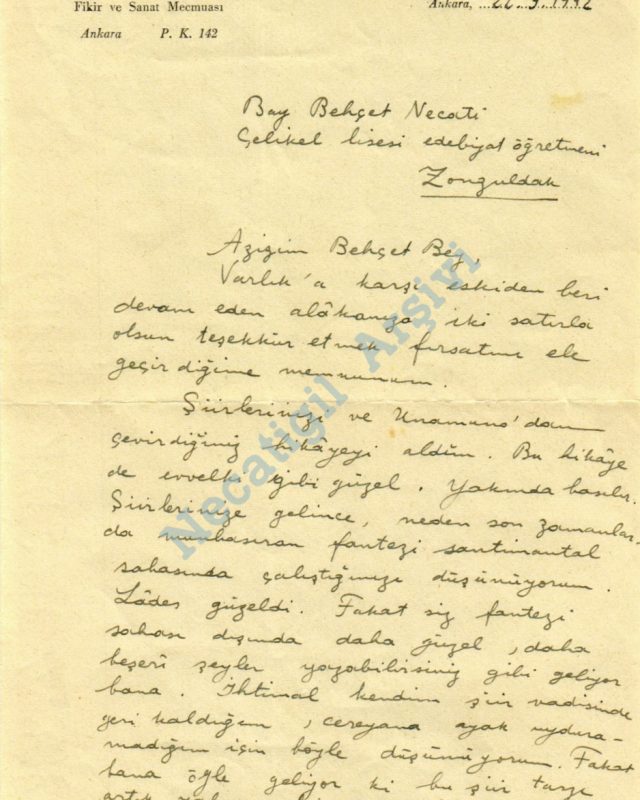 Fikir ve Sanat Mecmuası
Ankara P. K. 142
Ankara, ...22.9.1942
Bay Behçet Necati
Çelikel lisesi edebiyat öğretmeni
Zonguldak
Azizim Behçet Bey,
Varlık'a karşı eskiden beri
devam eden alâkanıza iki satırla
olsun teşekkür etmek fırsatını ele
geçirdiğime memnunum.
Şiirlerinizi ve Unamuno'dan
çevirdiğiniz hikâyeyi aldım. Bu hikâye
de evvelki gibi güzel. Yakında basılır.
Şiirlerinize gelince, neden son zamanlar-
da munhasıran fantezi santimantal
sahasında çalıştığınızı düşünüyorum.
Lâdes güzeldi. Fakat siz fantezi
sahası dışında daha güzel, daha
beşerî şeyler yazabilirsiniz gibi geliyor
bana. İhtimal kendim şiir vadisinde
geri kaldığım, cereyana ayak uydura-
madığım için böyle düşünüyorum. Fakat
bana öyle geliyor ki bu şiir tarzı
artık
Necatigil Arşivi